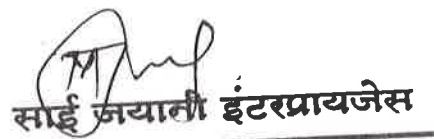 साई जयानी इंटरप्रायजेस